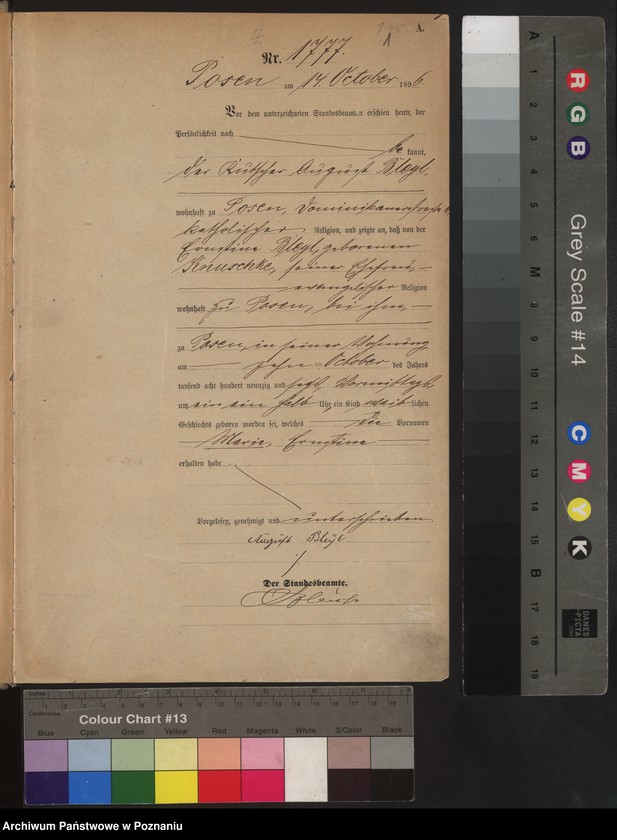 A.
1
Nr. 1777.
Posen am 14. October 1896
Vor dem unterzeichneten Standesbeamten erschien heute, der
Persönlichkeit nach
be kannt,
der Kutscher August Bleyl,
wohnhaft zu Posen, Dominikanerstraße
katholischer Religion, und zeigte an, daß von der
Ernstine Bleyl, geborenen
Knuschke, seiner Ehefrau,
evangelischer Religion
wohnhaft zu Posen, bei ihm,
zu Posen, in seiner Wohnung,
am zehn October des Jahres
tausend acht hundert neunzig und sechs Vormittags
um ein ein halb Uhr ein Kind weib lichen
Geschlechts geboren worden sei, welches die Vornamen
Marie, Ernstine
erhalten habe
Vorgelesen, genehmigt und unterschrieben
August Bleyl
Der Standesbeamte.
Inches 1 2 3 4 5 6 7 8
Centimetres 1 2 3 4 5 6 7 8 9 10 11 12 13 14 15 16 17 18 19
Colour Chart #13
Blue Cyan Green Yellow Red Magenta White 3/Color Black
Grey Scale #14
R G B
C M Y K
A 1 2 3 4 5 6 M 8 9 10 11 12 13 14 15 B 17 18 19
DANES
PICTA
Archiwum Państwowe w Poznaniu